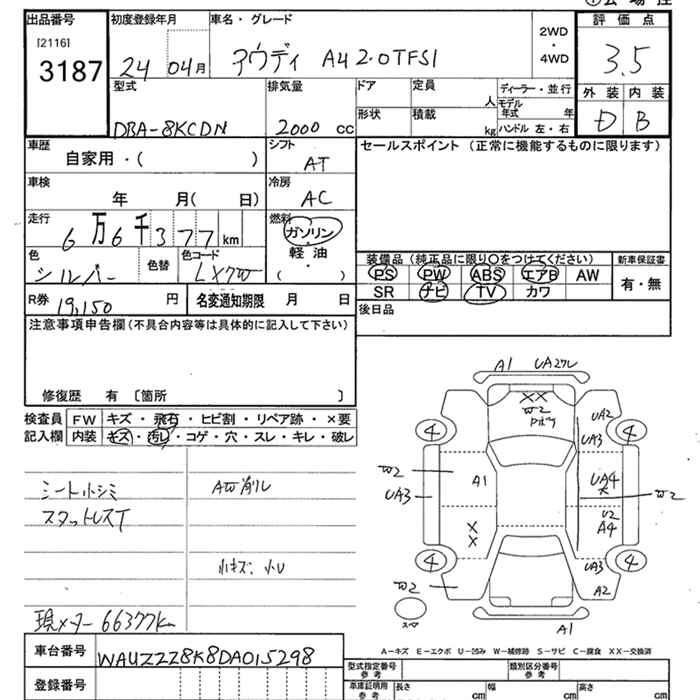 出品番号 初度登録年月 車名・グレード 評価点
[2116]
3187 24 04月 アウディ A4 2.0TFSI 2WD・4WD 3.5
型式 排気量 ドア 定員 人 ディーラー・並行 外装 内装
DBA-8KCDN 2000 cc 形状 積載 kg モデル年式 年 ハンドル 左・右 D B
車歴 シフト セールスポイント（正常に機能するものに限ります）
自家用・( ) AT
車検 冷房
年 月( 日) AC
走行 燃料
6万6千377km ガソリン・軽油・( )
色 色替 色コード 装備品（純正品に限り〇をつけてください） 新車保証書
シルバー LX7W PS PW ABS エアB AW 有・無
SR ナビ TV カワ
R券 19,150 円 名変通知期限 月 日 後日品
注意事項申告欄（不具合内容等は具体的に記入して下さい）
修復歴 有 〔箇所 〕
検査員 FW キズ・飛石・ヒビ割・リペア跡・×要
記入欄 内装 キズ・汚レ・コゲ・穴・スレ・キレ・破レ
シート小シミ
スタットレスT
AW削レ
小キズ、小U
現メーター 66377km
A1 UA2
XX
W2
UA2
UA3
4 4
W2
UA3
A1
UA4
X
W2
U2
A4
X
X
4 4
UA3
W2
A2
スペア
A1
A-キズ E-エクボ U-凹み W-補修跡 S-サビ C-腐食 XX-交換済
車台番号 WAUZZZ8K8DA015298
型式指定番号 参考 類別区分番号 参考
登録番号 車庫証明用 参考 長さ cm 幅 cm 高さ cm